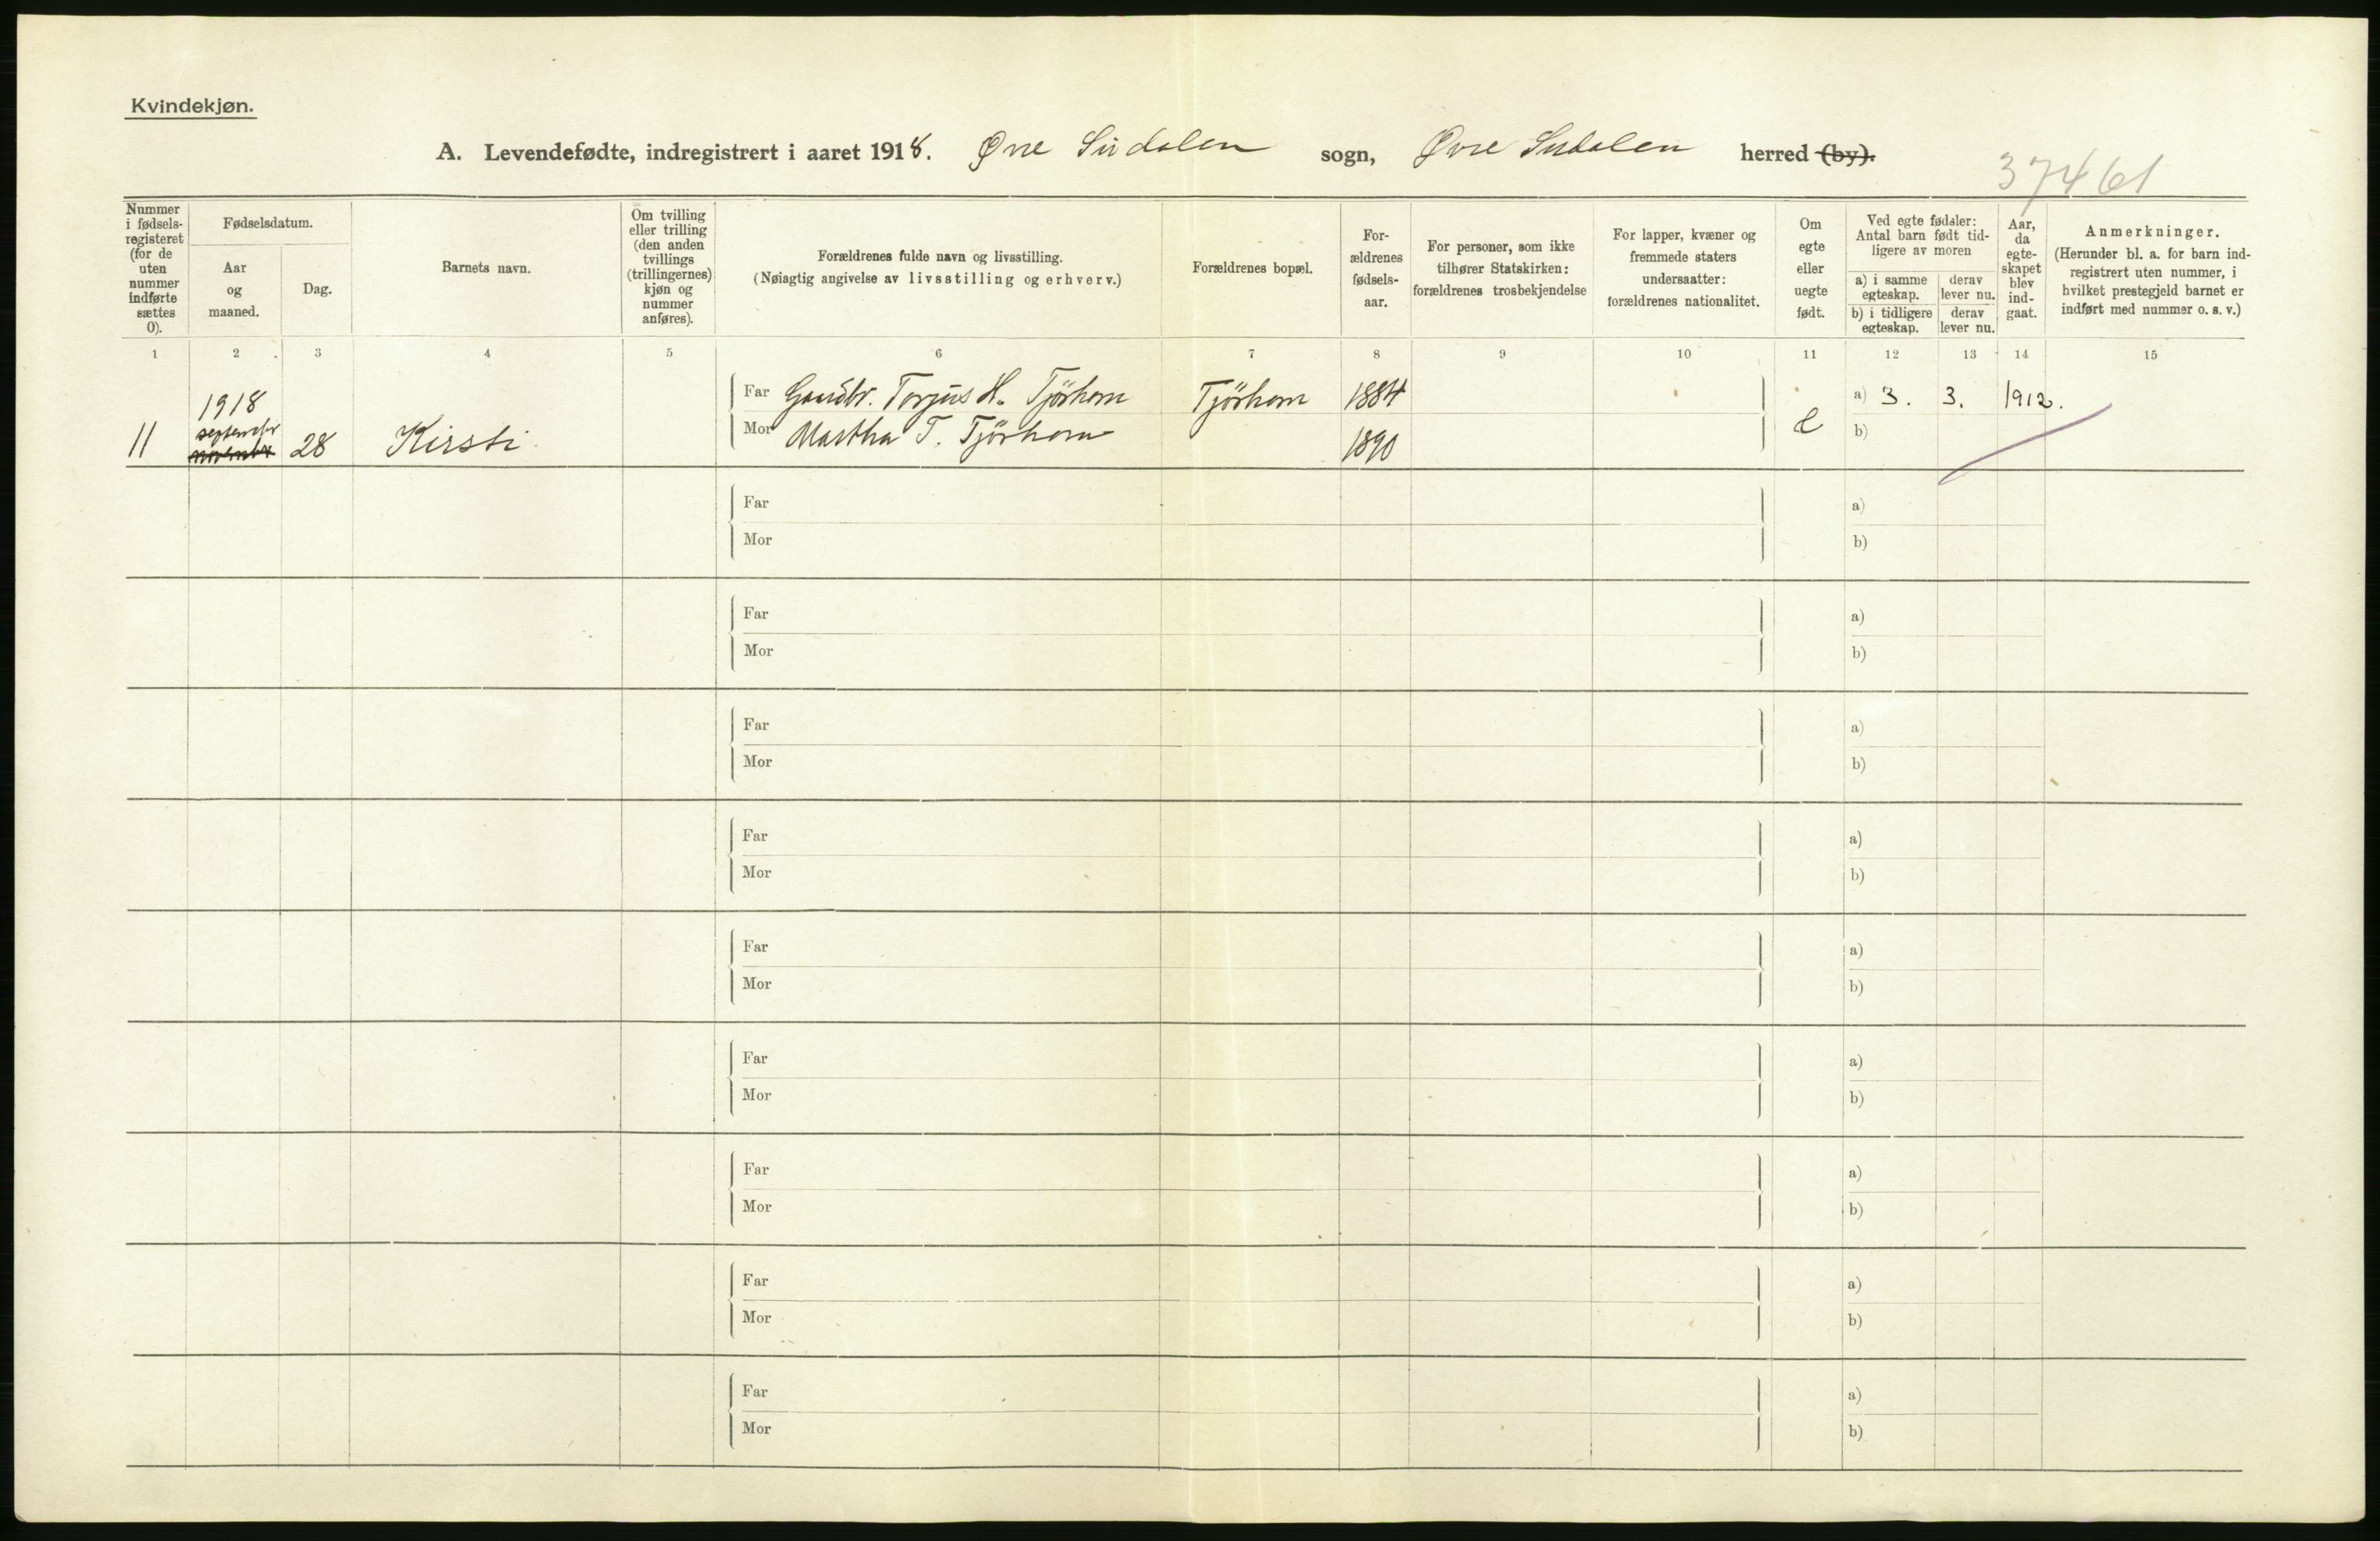 Kvindekjøn.
A. Levendefødte, indregistrert i aaret 1918. Øvre Sirdalen sogn, Øvre Sirdalen herred (by).
37461
Nummer i fødselsregisteret (for de uten nummer indførte sættes 0).
Fødselsdatum.
Aar og maaned.
Dag.
Barnets navn.
Om tvilling eller trilling (den anden tvillings (trillingernes) kjøn og nummer anføres).
Forældrenes fulde navn og livsstilling.
(Nøiagtig angivelse av livsstilling og erhverv.)
Forældrenes bopæl.
Forældrenes fødselsaar.
For personer, som ikke tilhører Statskirken: forældrenes trosbekjendelse
For lapper, kvæner og fremmede staters undersaatter: forældrenes nationalitet.
Om egte eller uegte født.
Ved egte fødsler: Antal barn født tidligere av moren
a) i samme egteskap.
derav lever nu.
b) i tidligere egteskap.
derav lever nu.
Aar, da egteskapet blev indgaat.
Anmerkninger.
(Herunder bl. a. for barn indregistrert uten nummer, i hvilket prestegjeld barnet er indført med nummer o. s. v.)
1 2 3 4 5 6 7 8 9 10 11 12 13 14 15
1918
Far Gaardbr. Torjus H. Tjörhom Tjörhom 1884 a) 3. 3. 1912.
11 september november 28 Kirsti Mor Martha T. Tjörhom 1890 e b)
Far a)
Mor b)
Far a)
Mor b)
Far a)
Mor b)
Far a)
Mor b)
Far a)
Mor b)
Far a)
Mor b)
Far a)
Mor b)
Far a)
Mor b)
Far a)
Mor b)